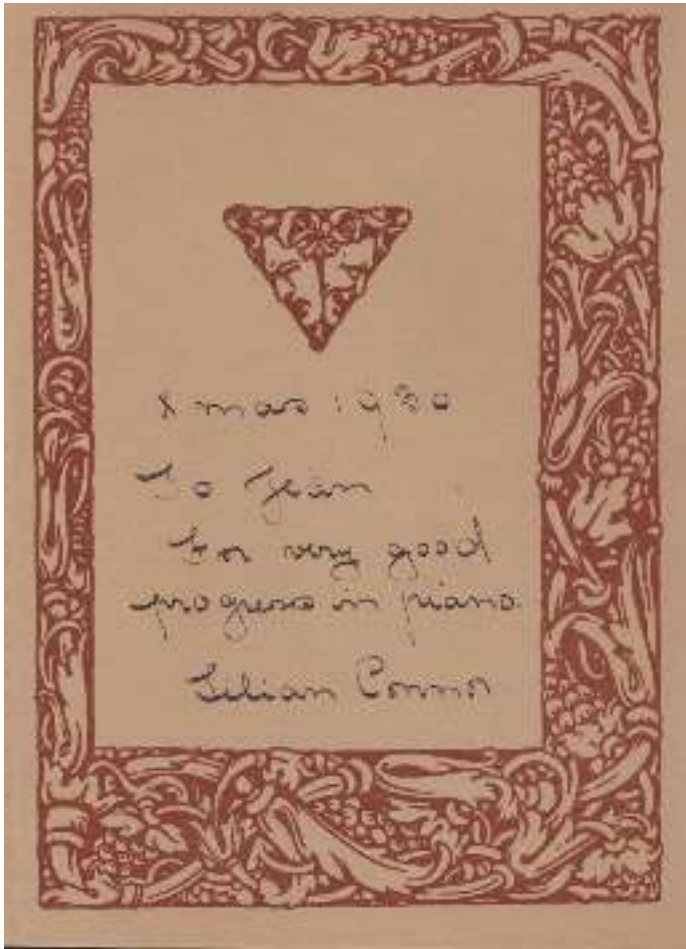 Xmas 1930
To Jean
For very good
progress in piano.
Lilian Connor